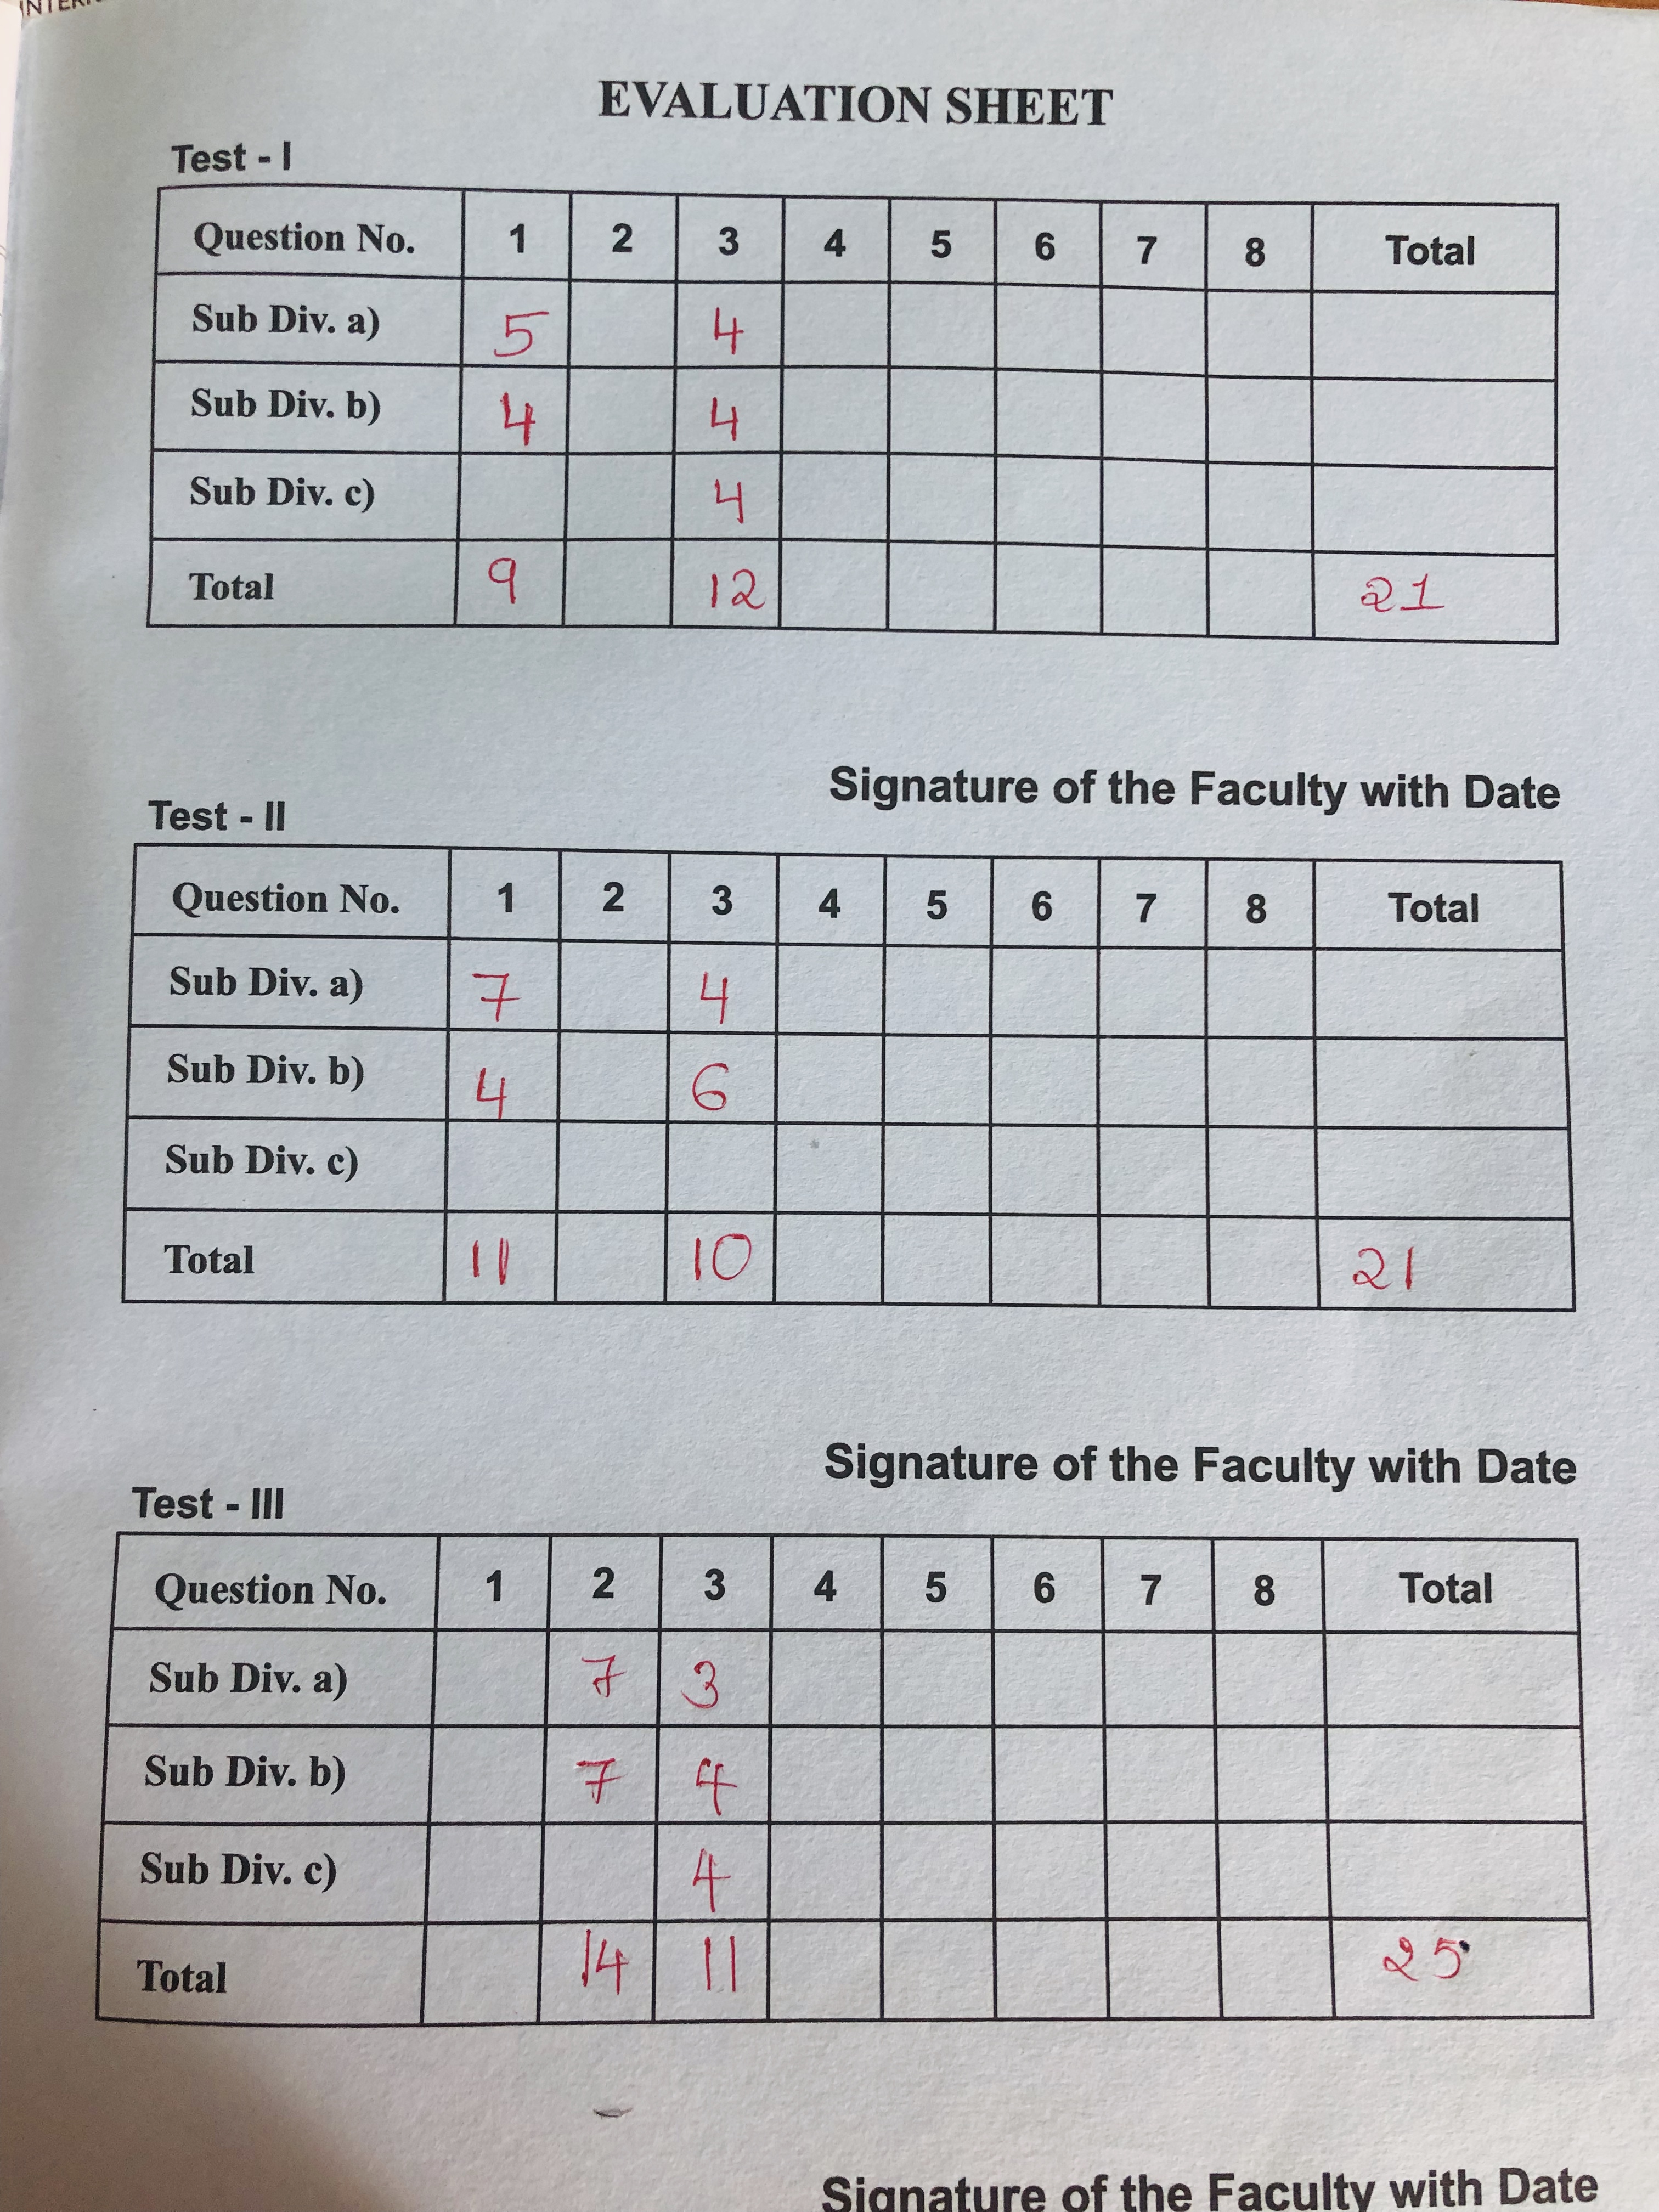 EVALUATION SHEET
Test - I
Question No. 1 2 3 4 5 6 7 8 Total
Sub Div. a) 5 4
Sub Div. b) 4 4
Sub Div. c) 4
Total 9 12 21
Signature of the Faculty with Date
Test - II
Question No. 1 2 3 4 5 6 7 8 Total
Sub Div. a) 7 4
Sub Div. b) 4 6
Sub Div. c)
Total 11 10 21
Signature of the Faculty with Date
Test - III
Question No. 1 2 3 4 5 6 7 8 Total
Sub Div. a) 7 3
Sub Div. b) 7 4
Sub Div. c) 4
Total 14 11 25
Signature of the Faculty with Date